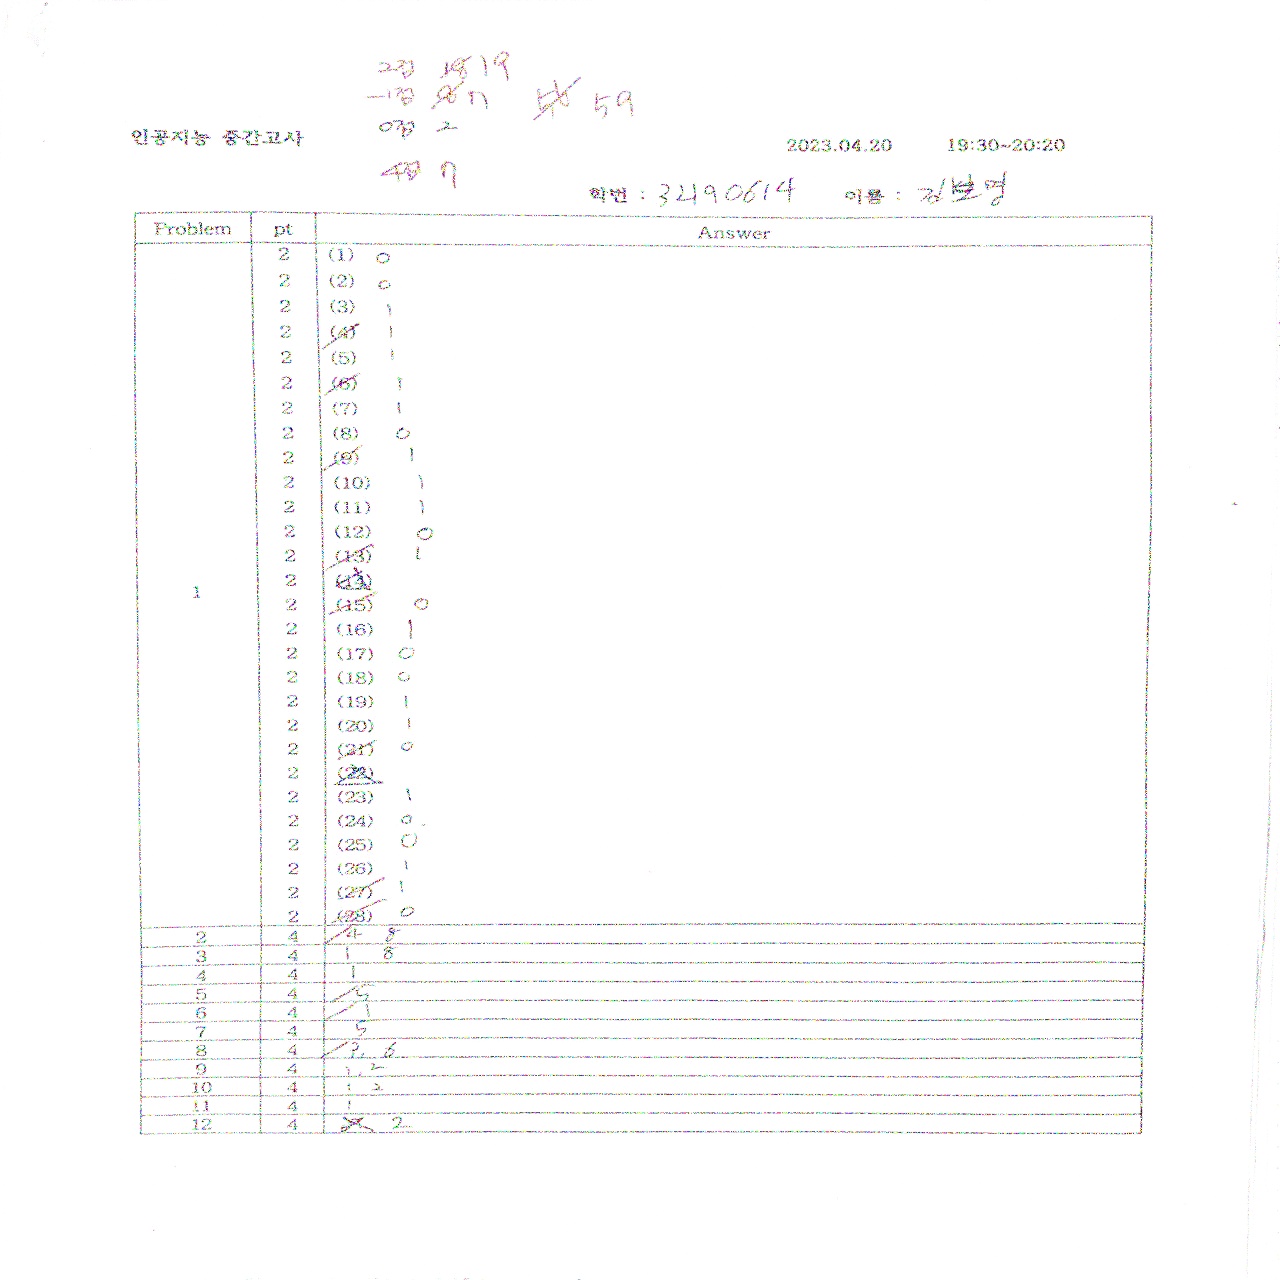 2점 19
-1점 7 59
0점 2
인공지능 중간고사 2023.04.20 19:30~20:20
4점 7
학번 : 32190614 이름 :
Problem pt Answer
1
2 (1) 0
2 (2) 0
2 (3) 1
2 (4) 1
2 (5) 1
2 (6) 1
2 (7) 1
2 (8) 0
2 (9) 1
2 (10) 1
2 (11) 1
2 (12) 0
2 (13) 1
2 (14)
2 (15) 0
2 (16) 1
2 (17) 0
2 (18) 0
2 (19) 1
2 (20) 1
2 (21) 0
2 (22)
2 (23) 1
2 (24) 0
2 (25) 0
2 (26) 1
2 (27) 1
2 (28) 0
2 4 4 8
3 4 1 8
4 4 1
5 4 5
6 4 1
7 4 5
8 4 3, 6
9 4 1, 2
10 4 1 2
11 4 1
12 4 2